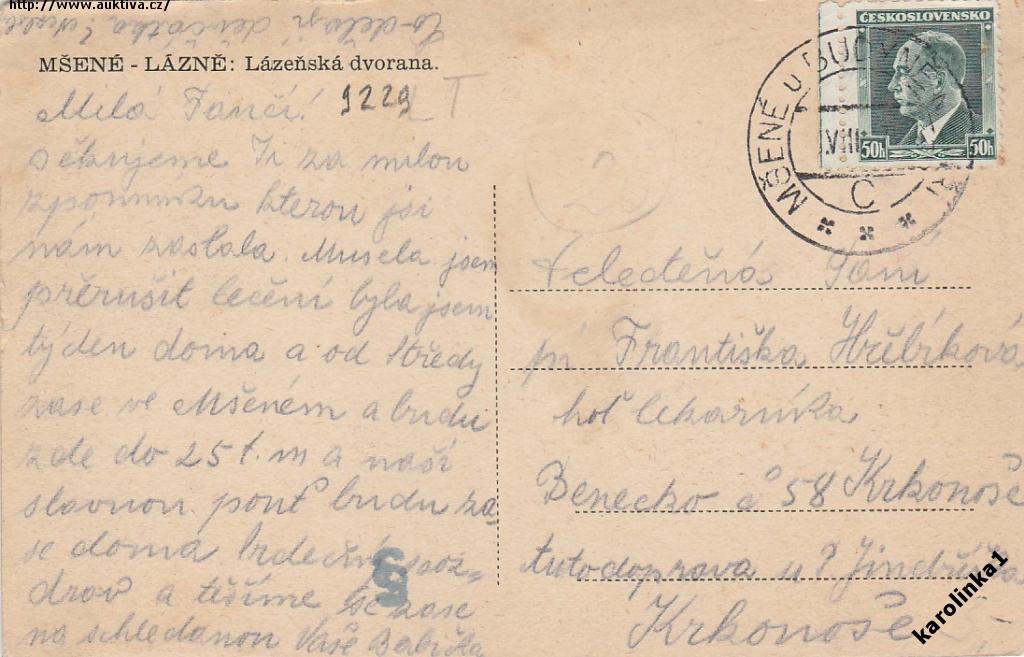 http://www.auktiva.cz/
Co dělají děvčátka
MŠENÉ - LÁZNĚ: Lázeňská dvorana.
9229
Milá Fančí!
děkujeme Ti za milou
zpomínku kterou jsi
nám zaslala. Musela jsem
přerušit lečení byla jsem
týden doma a od Středy
zase ve Mšeném a budu
zde do 25 t. m a naší
slavnou pouť budu za
se doma Srdečný poz„
drav a těšíme se zase
na schledanou Vaše Babička
69
ČESKOSLOVENSKO
50h 50h
MŠENÉ u BUDYNĚ
VIII
C
Veledtěná Paní
pí Františka Hřibíková
hoť lekarníka
Benecko č 58 Krkonoše
Autodoprava u P Jindřiška
Krkonoše
karolinka1